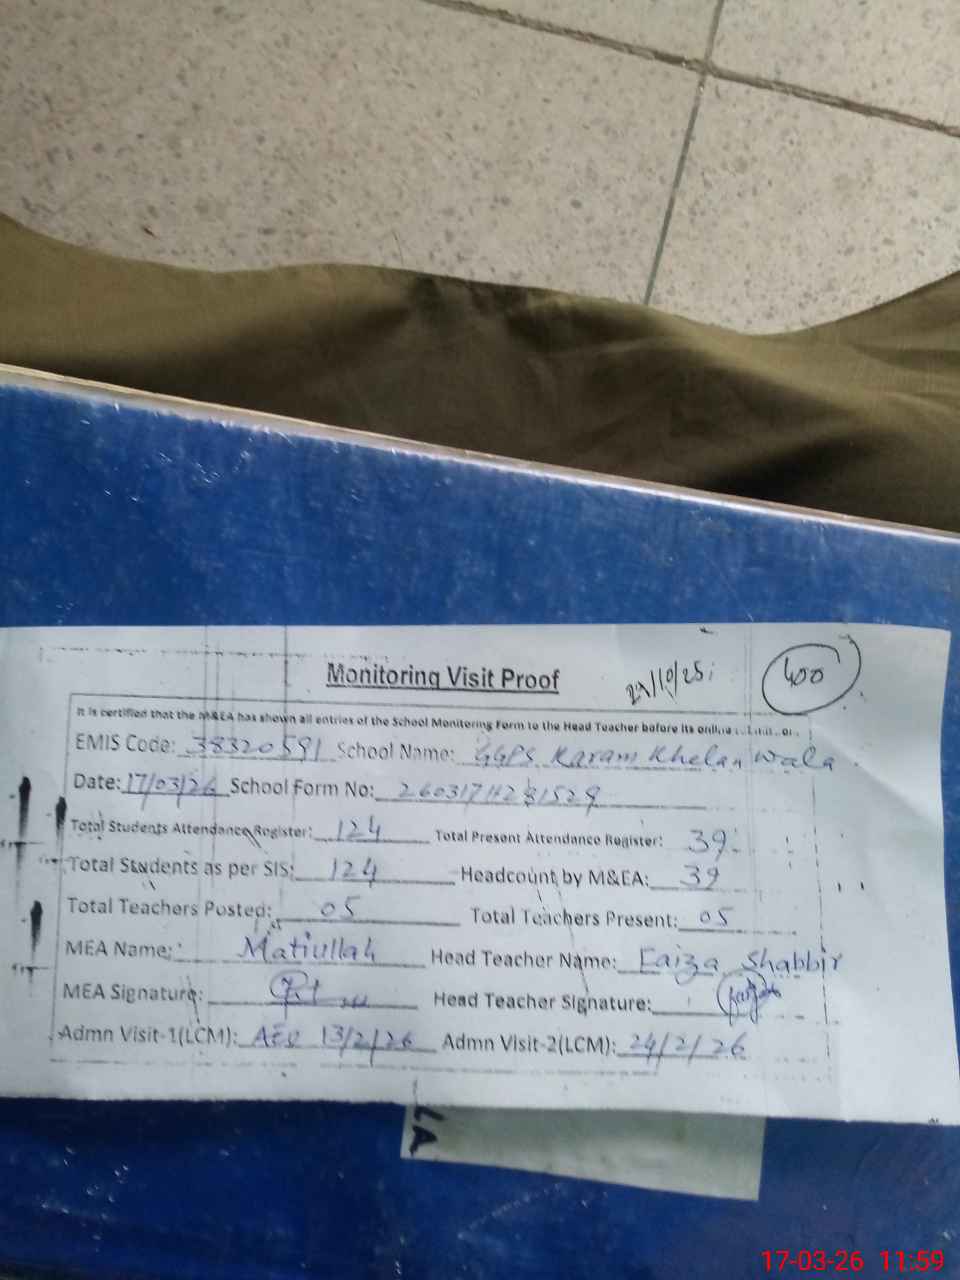 Monitoring Visit Proof
400
It is certified that the M&EA has shown all entries of the School Monitoring Form to the Head Teacher before its online
EMIS Code: 38320591 School Name: GGPS Karam Khelan wala
Date: 17/03/26 School Form No:
Total Students Attendance Register: 124 Total Present Attendance Register: 39
Total Students as per SIS: 124 Headcount by M&EA: 39
Total Teachers Posted: 05 Total Teachers Present: 05
MEA Name: Matiullah Head Teacher Name: Faiza Shabbir
MEA Signature: Head Teacher Signature:
Admn Visit-1(LCM): AEO 13/2/26 Admn Visit-2(LCM): 24/2/26
LA
17-03-26 11:59